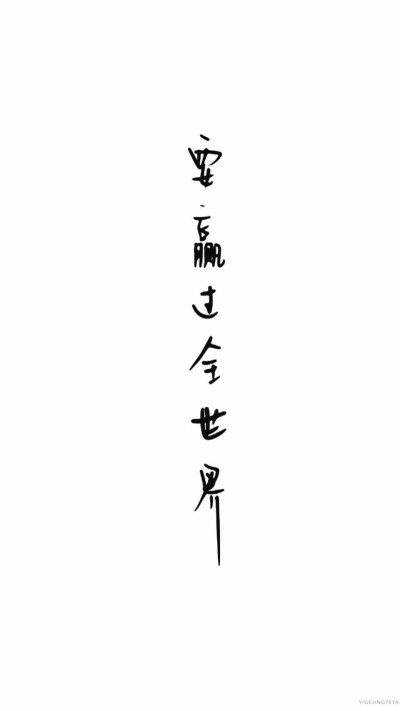 要赢过全世界
YIGEJINGYEYA